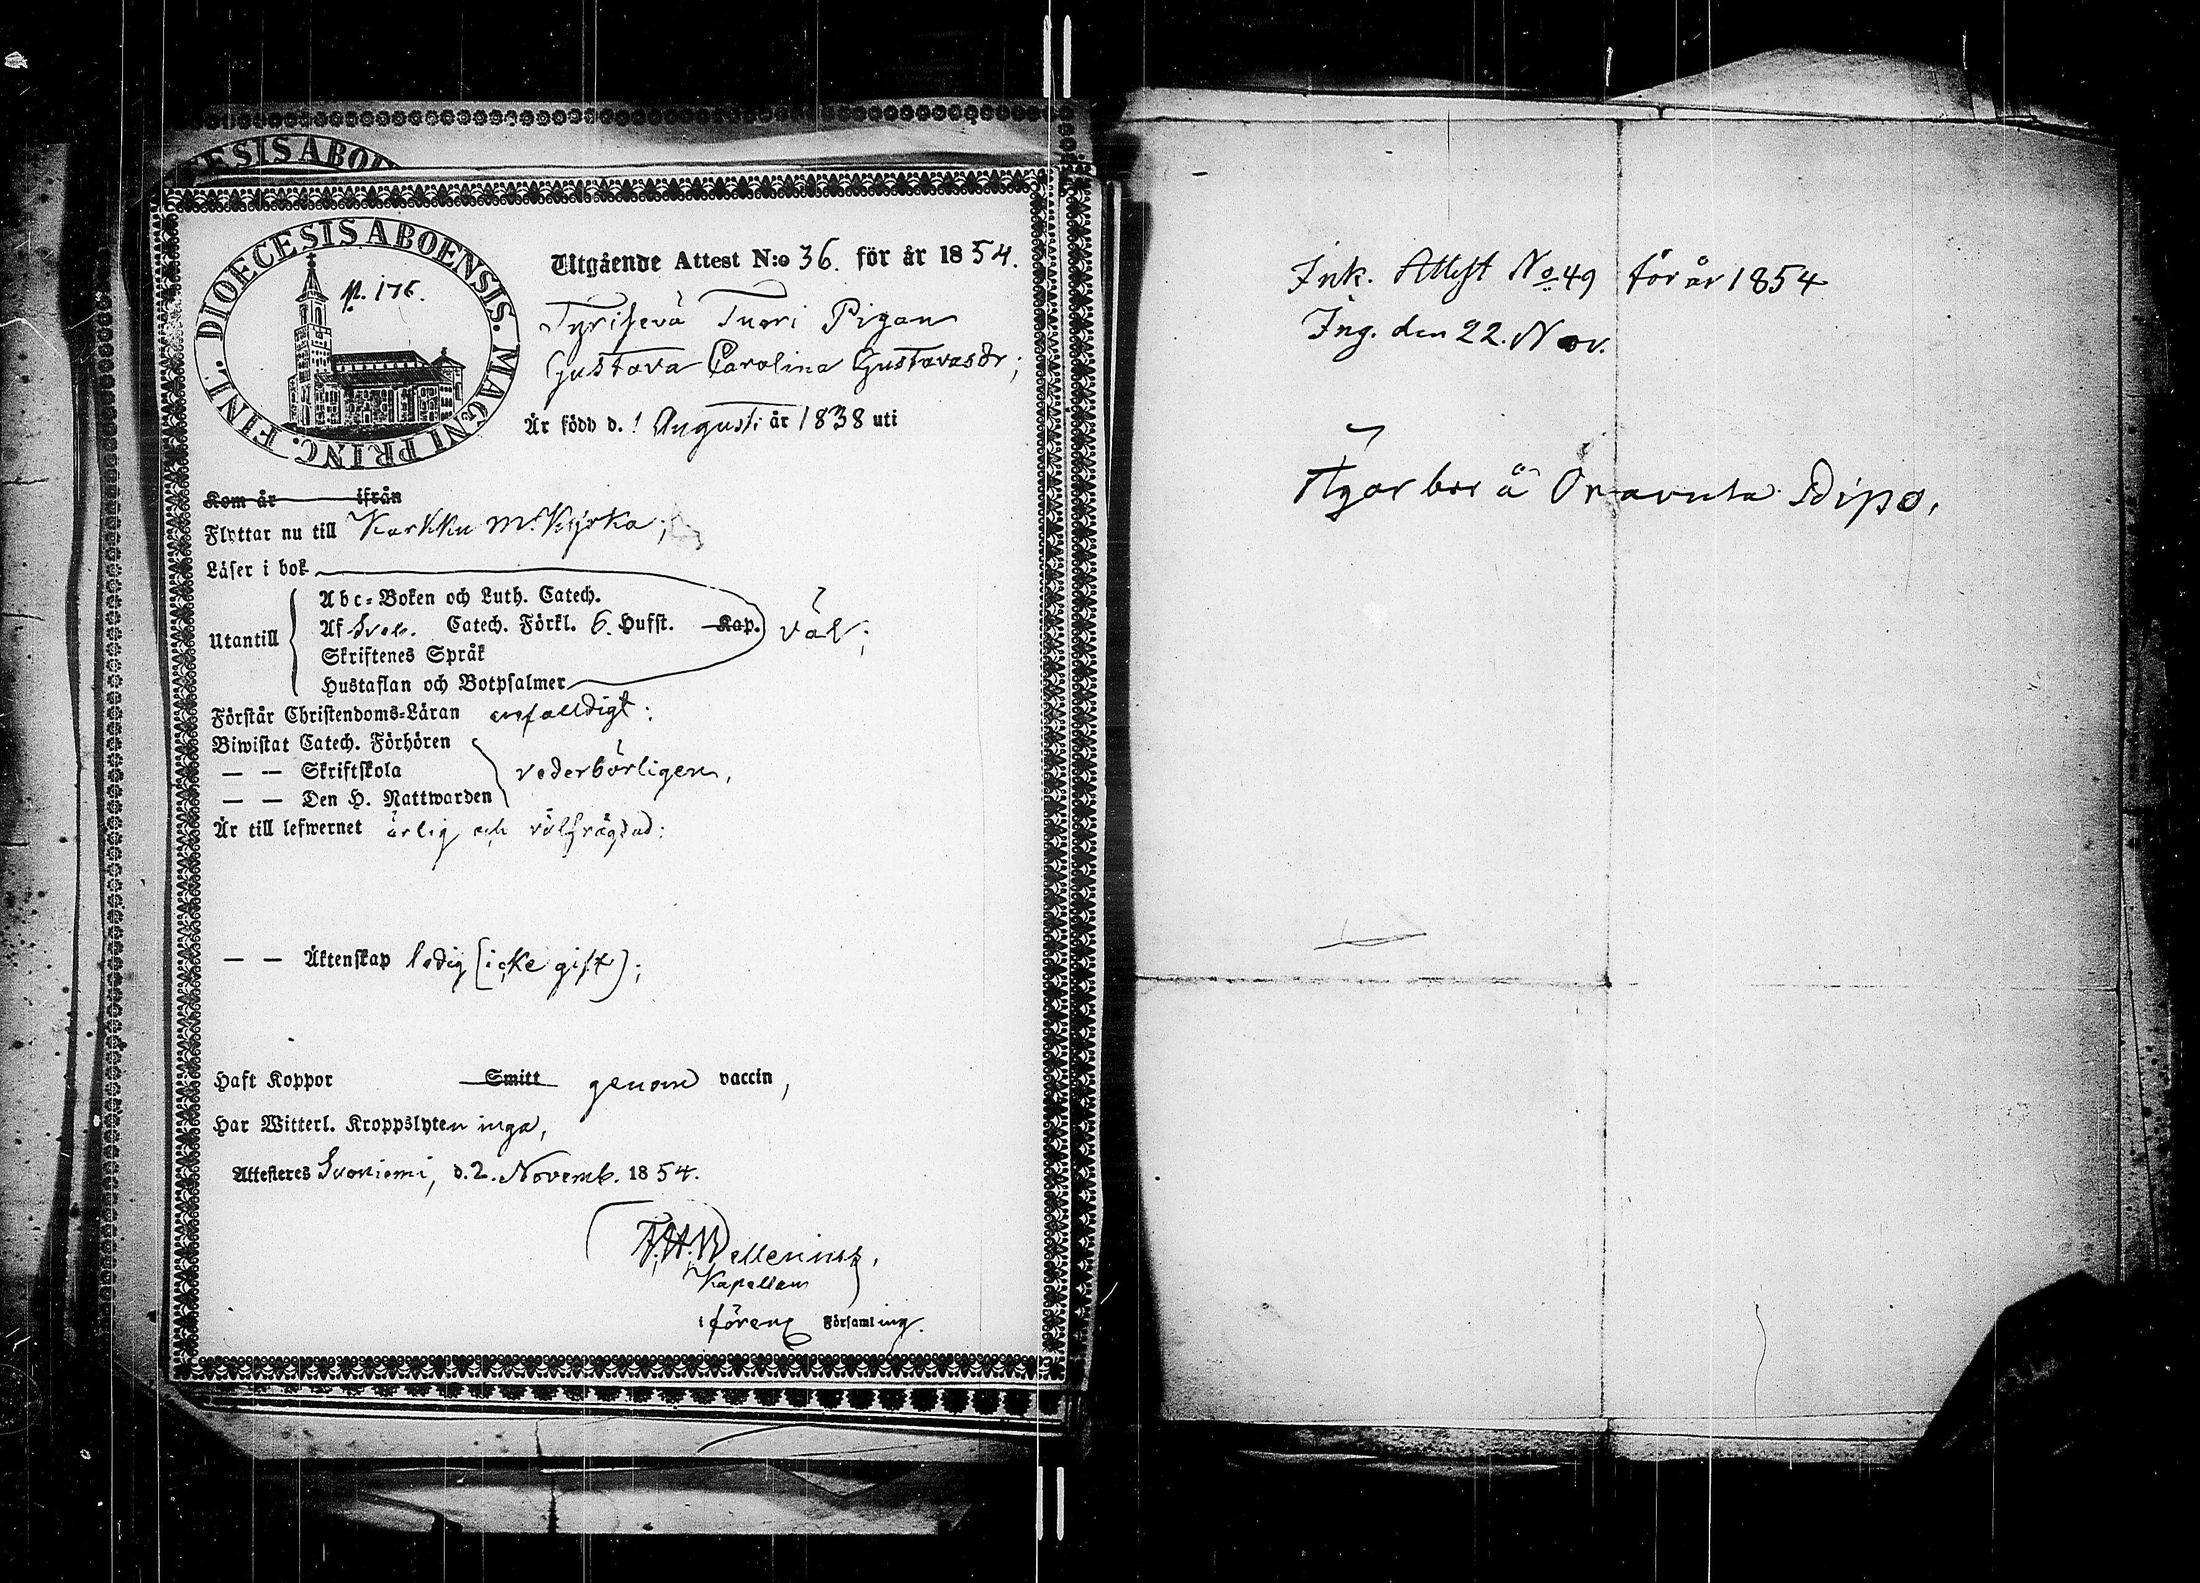 ESIS ABO
DIOECESIS ABOENSIS. MAGNI PRINC. FINL.
p. 176.
Utgående Attest N:o 36. för år 1854.
Tyrisevä Tuori Pigan
Gustava Carolina Gustavasdr;
Är född d. 1 Augusti år 1838 uti
Kom år ifrån
Flyttar nu till Karkku M. Kyrka;
Läser i bok
Abc-Boken och Luth. Catech.
Utantill Af Sveb. Catech. Förkl. 6. Hufst. Kap. väl;
Skriftenes Språk
Hustaflan och Botpsalmer
Förstår Christendoms-Läran enfalldigt;
Biwistat Catech. Förhören
— — Skriftskola vederbörligen,
— — Den H. Nattwarden
Är till lefwernet ärlig och välfrägdad;
— — Äktenskap ledig (icke gift);
Haft Koppor Smitt genom vaccin,
Har Witterl. Kroppslyten inga,
Attesteres Suoniemi, d. 2. Novemb. 1854.
F. H. Wellenius,
Kapellan
i förene Församling.
Ink. Attest No 49 för år 1854
Ing. den 22. Nov.
Ägor bor å Oravuta Dipo.